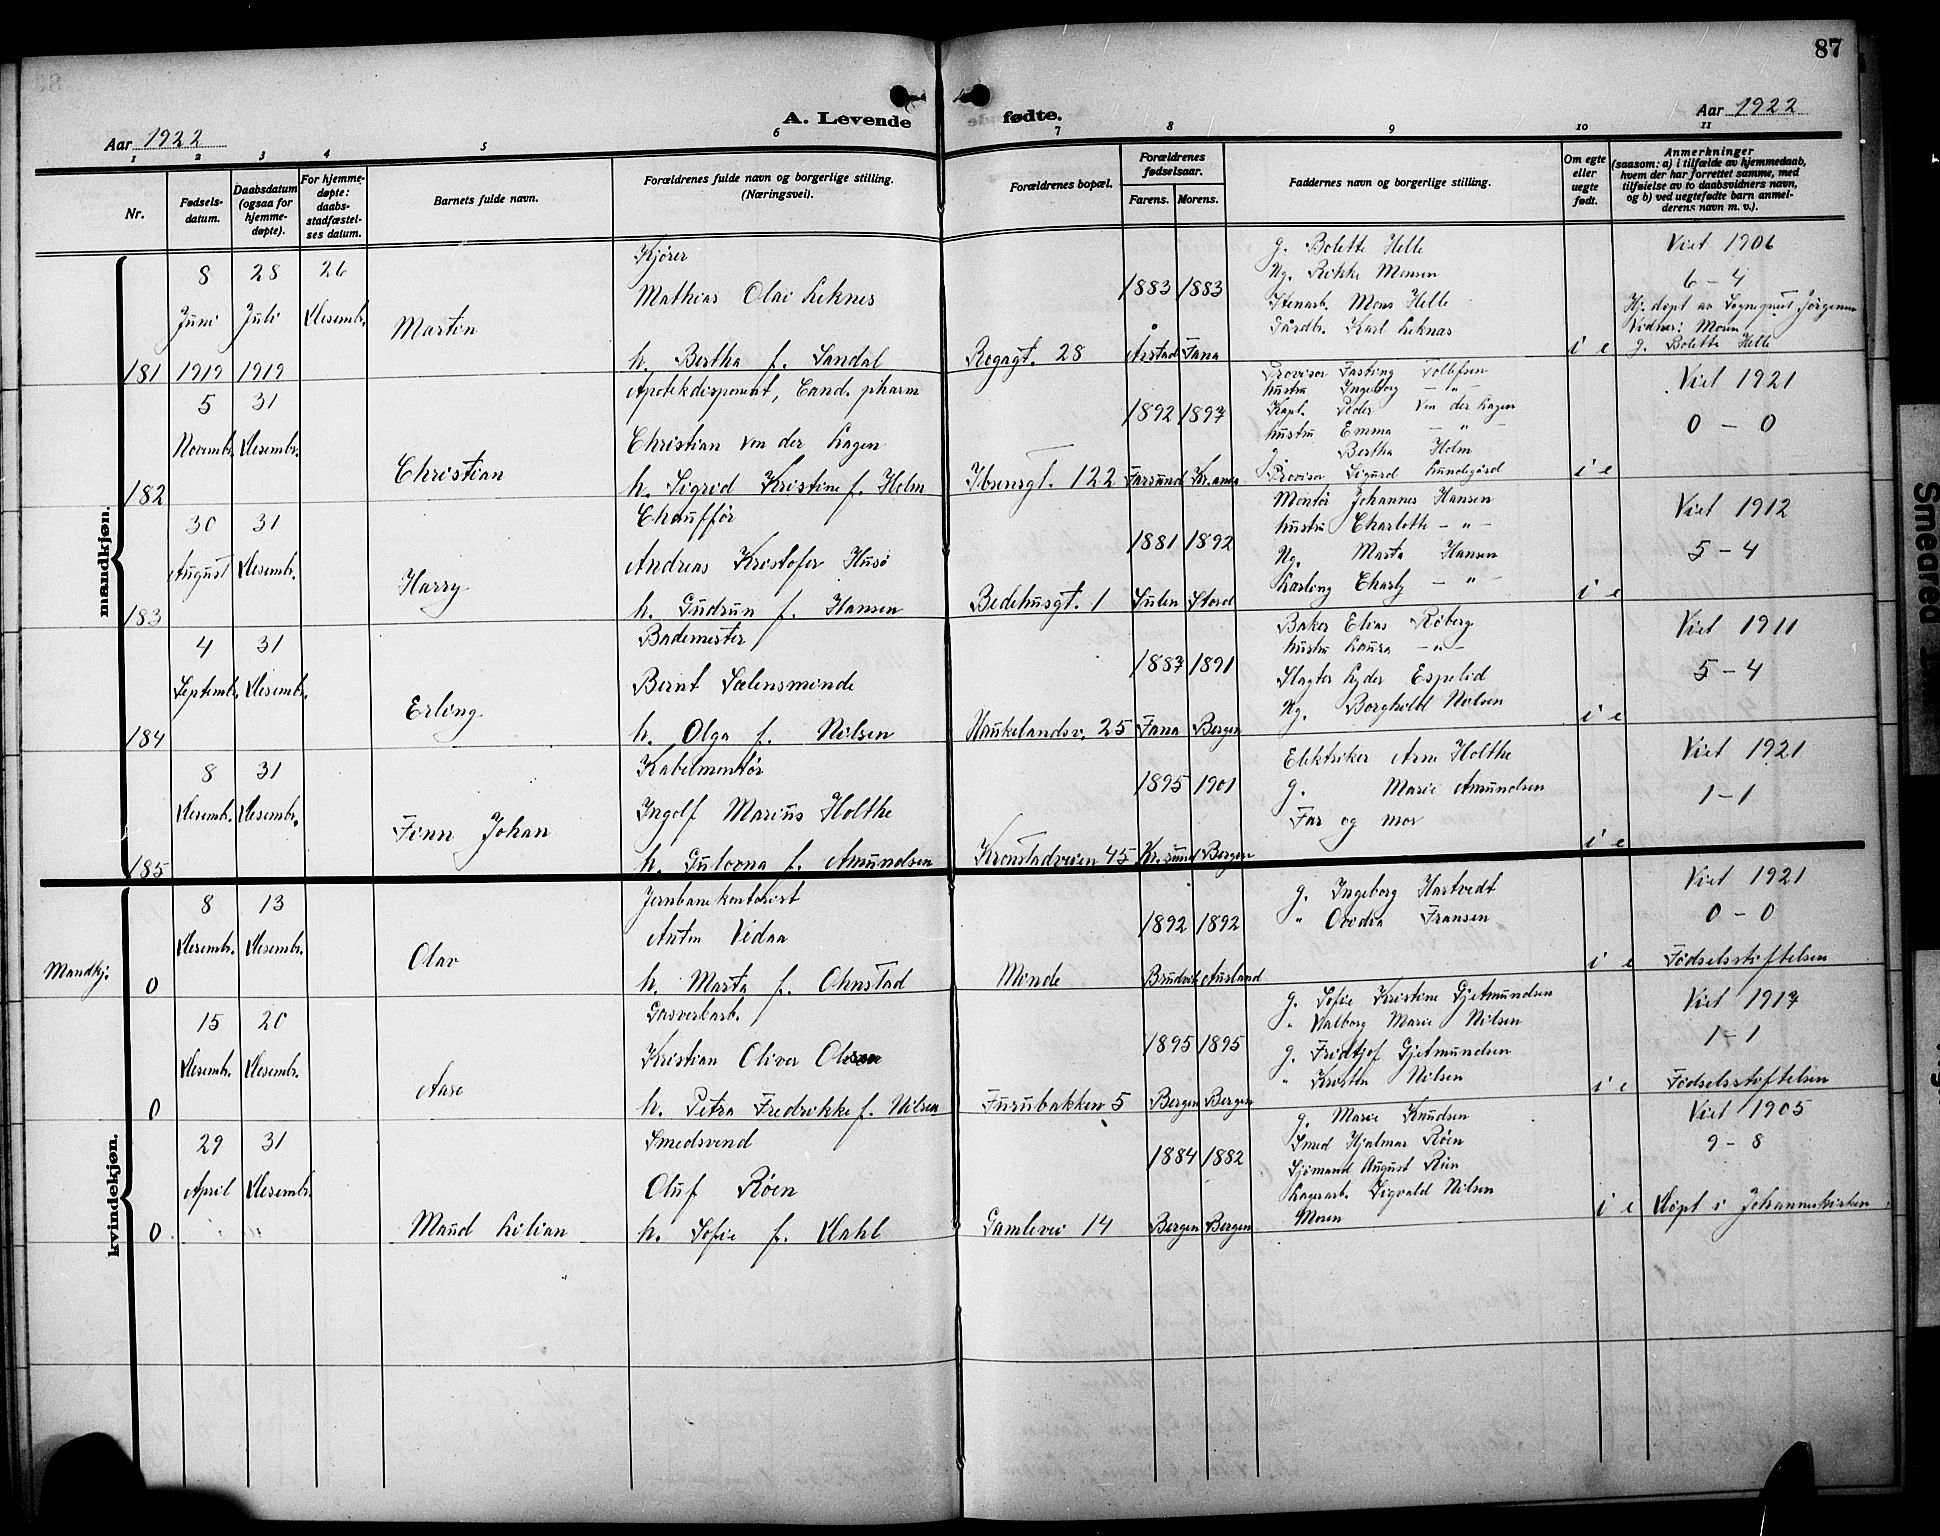 87
Aar 1922
A. Levende fødte.
Aar 1922
1 2 3 4 5 6 7 8 9 10 11
Nr.
Fødsels-
datum.
Daabsdatum
(ogsaa for
hjemme-
døpte).
For hjemme-
døpte:
daabs-
stadfæstel-
ses datum.
Barnets fulde navn.
Forældrenes fulde navn og borgerlige stilling.
(Næringsvei).
Forældrenes bopæl.
Forældrenes
fødselsaar.
Farens. Morens.
Faddernes navn og borgerlige stilling.
Om egte
eller
uegte
født.
Anmerkninger
(saasom: a) i tilfælde av hjemmedaab,
hvem der har forrettet samme, med
tilføielse av to daabsvidners navn,
og b) ved uegtefødte barn anmel-
derens navn m. v.).
mandkjøn.
181
8
Juni
1919
28
Juli
1919
26
Desembr.
Martin
Kjører
Mathias Olai Leknes
h. Bertha f. Sandal
Rogagt. 28
1883 1883
Årstad Fana
g. Bolette Helle
Ug. Rikke Monsen
Stenarb. Mons Helle
Gårdbr. Karl Leknes
i e
Viet 1906
6 - 4
Hj. døpt av Sogneprest Jørgensen
Vidner: Moren
g. Bolette Helle
182
5
Novembr.
31
Desembr.
Christian
Apotekdisponent, Cand. pharm
Christian von der Lagen
h. Sigrid Kristine f. Holm
Ibsensgt. 122
1892 1897
Farsund Kr.ania
Provisor Fasting Tollefsen
hustru Ingeborg - " -
Kapt. Peder von der Lagen
hustru Emma - " -
g. Bertha Holm
Provisor Sigurd Lundegård
i e
Viet 1921
0 - 0
183
30
August
31
Desembr.
Harry
Chaufför
Andreas Kristofer Husø
h. Gudrun f. Hansen
Bedehusgt. 1
1881 1892
Sulen Stord
Montør Johannes Hansen
hustru Charlotte - " -
Ug. Marta Hansen
Yngling Charly - " -
i e
Viet 1912
5 - 4
184
4
Septembr.
31
Desembr.
Erling
Bademester
Bernt Sælensminde
h. Olga f. Nilsen
Haukelandsv. 25
1887 1891
Fana Bergen
Baker Elias Roberg
hustru Laura - " -
Slagter Lyder Espelid
Ug. Borghild Nilsen
i e
Viet 1911
5 - 4
185
8
Desembr.
31
Desembr.
Finn Johan
Kabelmontør
Ingolf Marius Holthe
h. Gulovna f. Amundsen
Kronstadveien 45
1895 1901
Kr.sund Bergen
Elektriker Arne Holthe
g. Marie Amundsen
Far og mor
i e
Viet 1921
1 - 1
kvindekjøn.
Mandkj.
0
8
Desembr.
13
Desembr.
Olav
Jernbanekontorist
Anton Vidaa
h. Marta f. Ohnstad
Minde
1892 1892
Bruvik Aurland
g. Ingeborg Hartvedt
" Ovidia Fransen
i e
Viet 1921
0 - 0
Fødselsstiftelsen
0
15
Desembr.
20
Desembr.
Aase
Gasverkarb.
Kristian Oliver Olsen
h. Petra Fredrikke f. Nilsen
Furubakken 5
1895 1895
Bergen Bergen
g. Sofie Kristine Gjetmundsen
" Valborg Marie Nilsen
g. Fridtjof Gjetmundsen
" Kristen Nilsen
i e
Viet 1917
1 - 1
Fødselsstiftelsen
0
29
April
31
Desembr.
Maud Lilian
Smedsvend
Oluf Røen
h. Sofie f. Dahl
Gamlevei 14
1884 1882
Bergen Bergen
g. Marie Knudsen
Smed Hjalmar Røen
Sjømand August Røen
Lagerarb. Sigvald Nilsen
Moren
i e
Viet 1905
9 - 8
Døpt i Johanneskirken